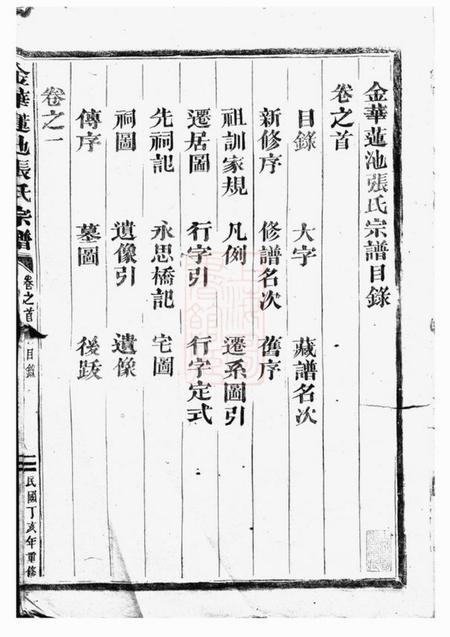 金華蓮池張氏宗譜目錄
卷之首
目錄 大字 藏譜名次
新修序 修譜名次 舊序
祖訓家規 凡例 遷系圖引
遷居圖 行字引 行字定式
先祠記 永思橋記 宅圖
祠圖 遺像引 遺像
傳序 墓圖 後跋
卷之一
金華蓮池張氏宗譜 卷之首 目錄 民國丁亥年重修